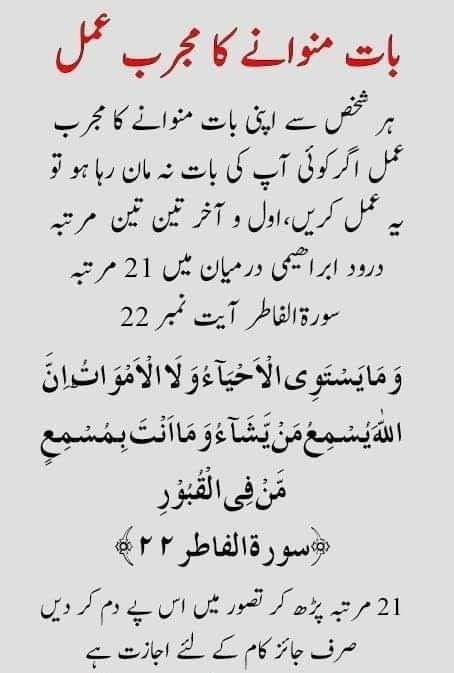 بات منوانے کا مجرب عمل
ہر شخص سے اپنی بات منوانے کا مجرب
عمل اگر کوئی آپ کی بات نہ مان رہا ہو تو
یہ عمل کریں،اول و آخر تین تین مرتبہ
درود ابراھیمی درمیان میں 21 مرتبہ
سورۃالفاطر آیت نمبر 22
وَمَا يَسْتَوِى الْاَحْيَآءُ وَلَا الْاَمْوَاتُ ؕ اِنَّ
اللّٰهَ يُسْمِعُ مَنْ يَّشَآءُ وَمَا اَنْتَ بِمُسْمِعٍ
مَّنْ فِى الْقُبُوْرِ
﴿سورۃ الفاطر ۲۲﴾
21 مرتبہ پڑھ کر تصور میں اس پے دم کر دیں
صرف جائز کام کے لئے اجازت ہے